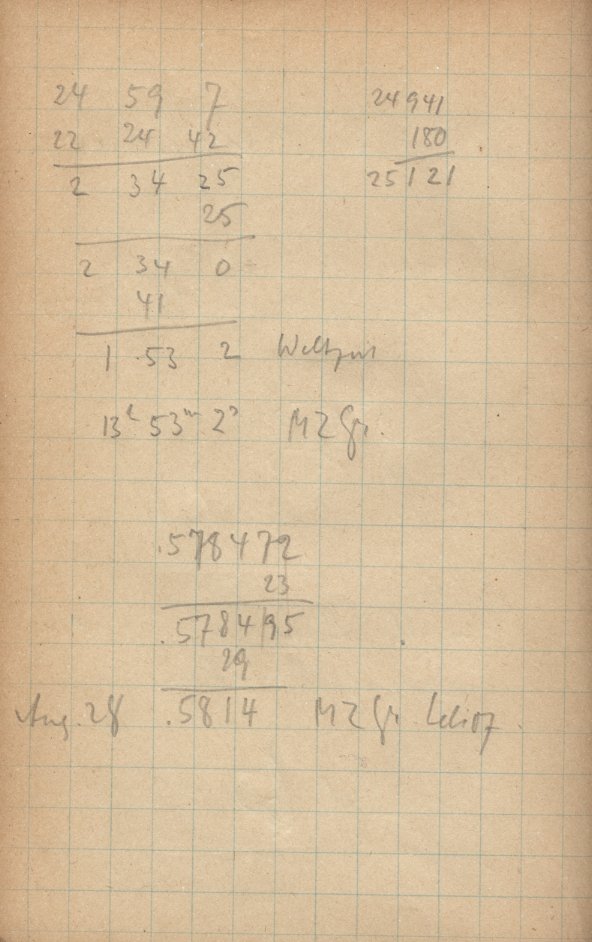 24 59 7
22 24 42
2 34 25
25
2 34 0
41
1 53 2 Weltzeit
13h 53m 2s M Z Gr.
24941
180
25121
.578472
23
.578495
29
Aug. 28 .5814 M Z Gr. helioz.